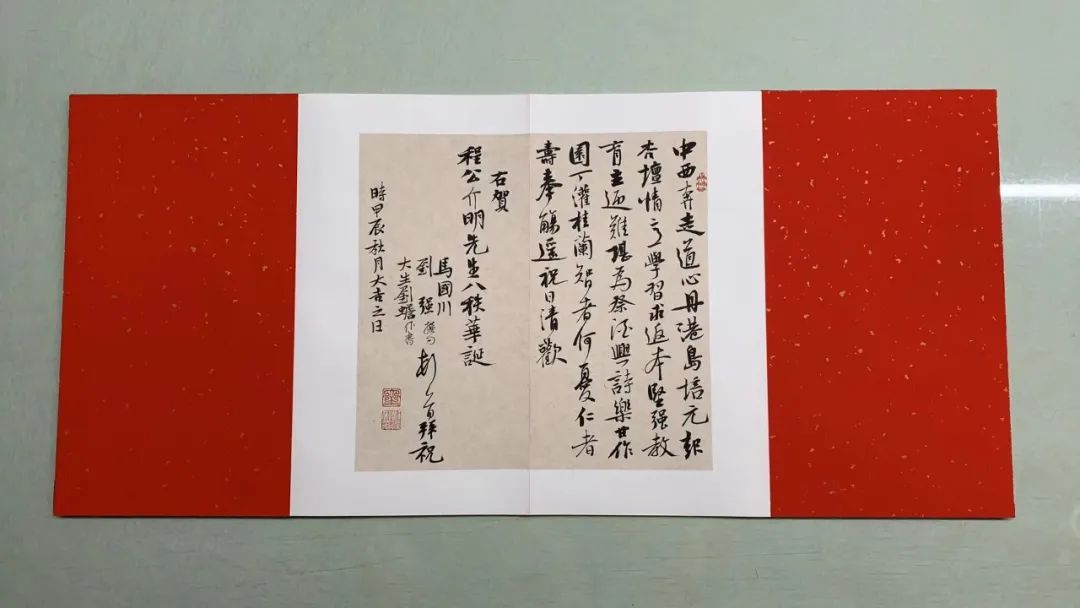 中西奔走道心丹港島培元報
杏壇情學習求返本堅强教
育迎難堪為祭酒興詩樂甘作
園丁灌桂蘭智者何憂仁者
壽奉觴遥祝日清歡
右賀
程公介明先生八秩華誕
馬國川
劉强撰句
大生劉書
首拜祝
時甲辰秋月大吉之日